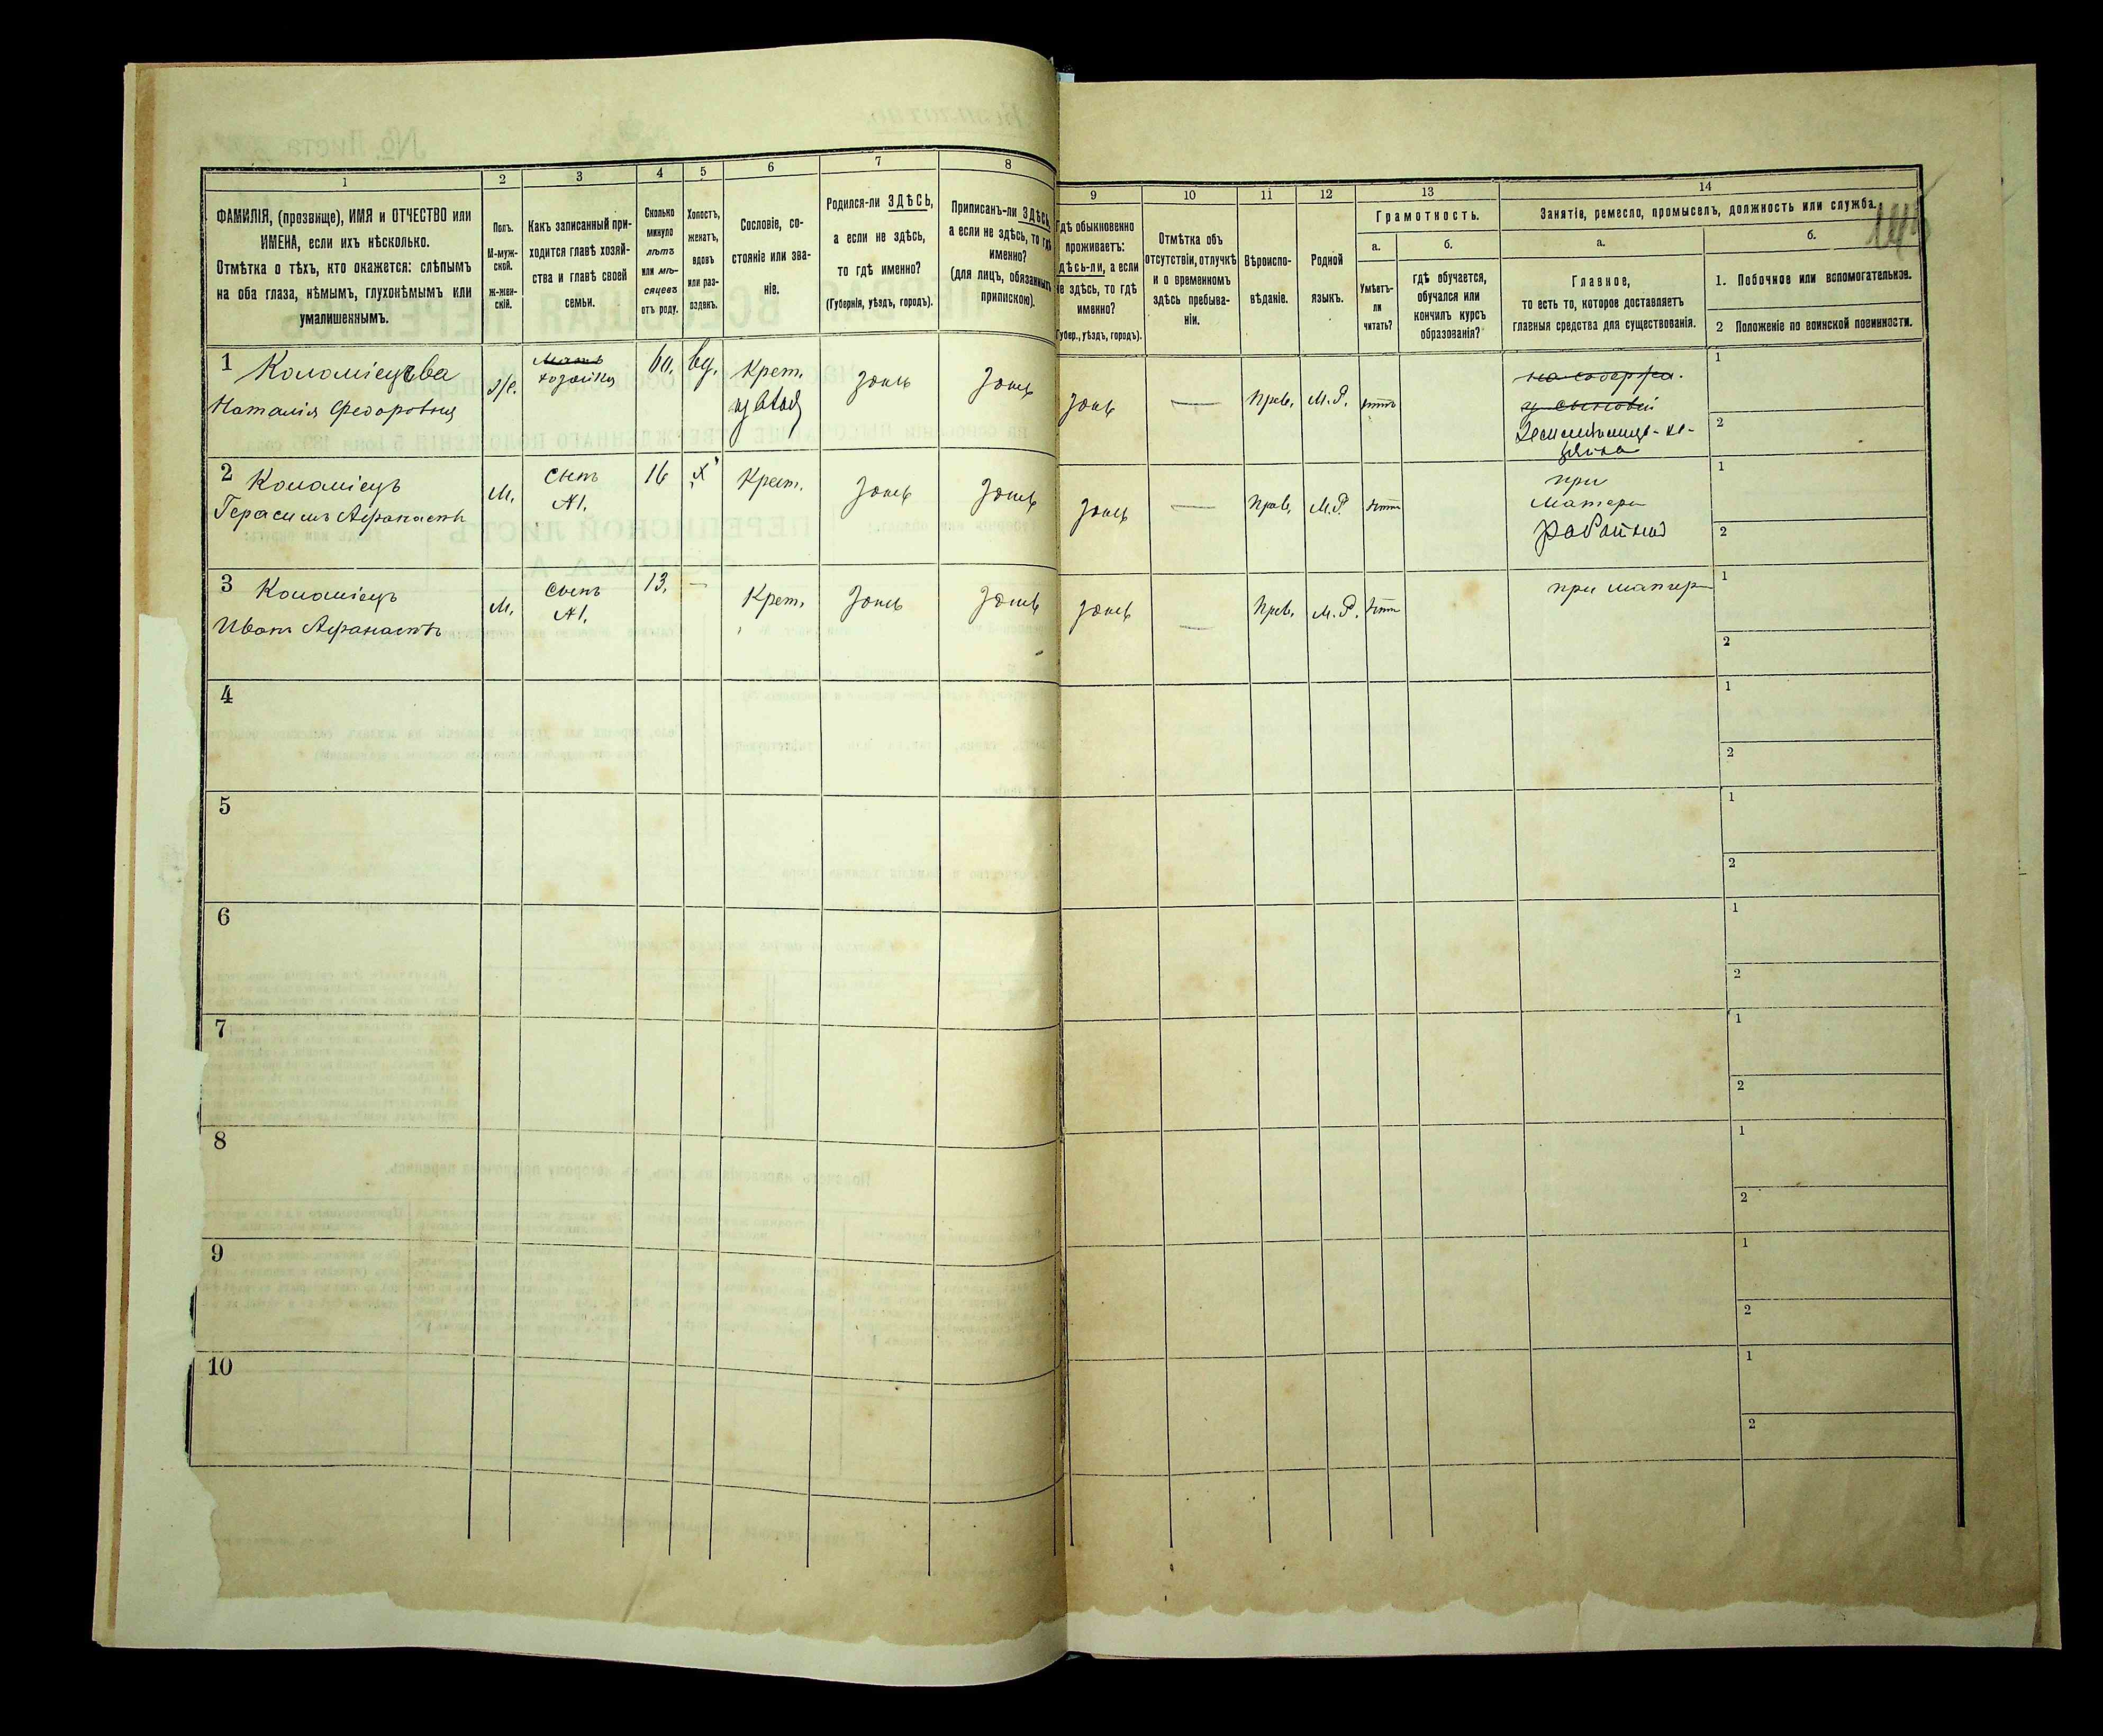 1 2 3 4 5 6 7 8 9 10 11 12 13 14
ФАМИЛІЯ, (прозвище), ИМЯ и ОТЧЕСТВО или
ИМЕНА, если ихъ нѣсколько.
Отмѣтка о тѣхъ, кто окажется: слѣпымъ
на оба глаза, нѣмымъ, глухонѣмымъ или
умалишеннымъ.
Полъ.
М-муж-
ской.
Ж-жен-
скій.
Какъ записанный при-
ходится главѣ хозяй-
ства и главѣ своей
семьи.
Сколько
минуло
лѣтъ
или мѣ-
сяцевъ
отъ роду.
Холостъ,
женатъ,
вдовъ
или раз-
веденъ.
Сословіе, со-
стояніе или зва-
ніе.
Родился-ли ЗДѢСЬ,
а если не здѣсь,
то гдѣ именно?
(Губернія, уѣздъ, городъ).
Приписанъ-ли ЗДѢСЬ,
а если не здѣсь, то гдѣ
именно?
(для лицъ, обязанныхъ
припискою).
Гдѣ обыкновенно
проживаетъ:
здѣсь-ли, а если
не здѣсь, то гдѣ
именно?
(Губер., уѣздъ, городъ).
Отмѣтка объ
отсутствіи, отлучкѣ
и о временномъ
здѣсь пребыва-
ніи.
Вѣроиспо-
вѣданіе.
Родной
языкъ.
Грамотность.
а.
Умѣетъ-
ли
читать?
б.
гдѣ обучается,
обучался или
кончилъ курсъ
образованія?
Занятіе, ремесло, промыселъ, должность или служба.
а.
Главное,
то есть то, которое доставляетъ
главныя средства для существованія.
б.
1. Побочное или вспомогательное.
2 Положеніе по воинской повинности.
1 Коломіецева
Наталія Федоровна
ж.
хозяйка
60.
вд.
Крет.
здѣсь
здѣсь
здѣсь
—
Прав.
М.Р.
нѣтъ
1
2
2 Коломіецъ
Герасимъ Афанасьевъ
М.
сынъ
№1.
16
х
Крест.
здѣсь
здѣсь
здѣсь
—
Прав.
М.Р.
нѣтъ
при
матери
1
2
3 Коломіецъ
Иванъ Афанасьевъ
М.
сынъ
№1.
13.
—
Крет.
здѣсь
здѣсь
здѣсь
—
Прав.
М.Р.
нѣтъ
при матери
1
2
4
1
2
5
1
2
6
1
2
7
1
2
8
1
2
9
1
2
10
1
2